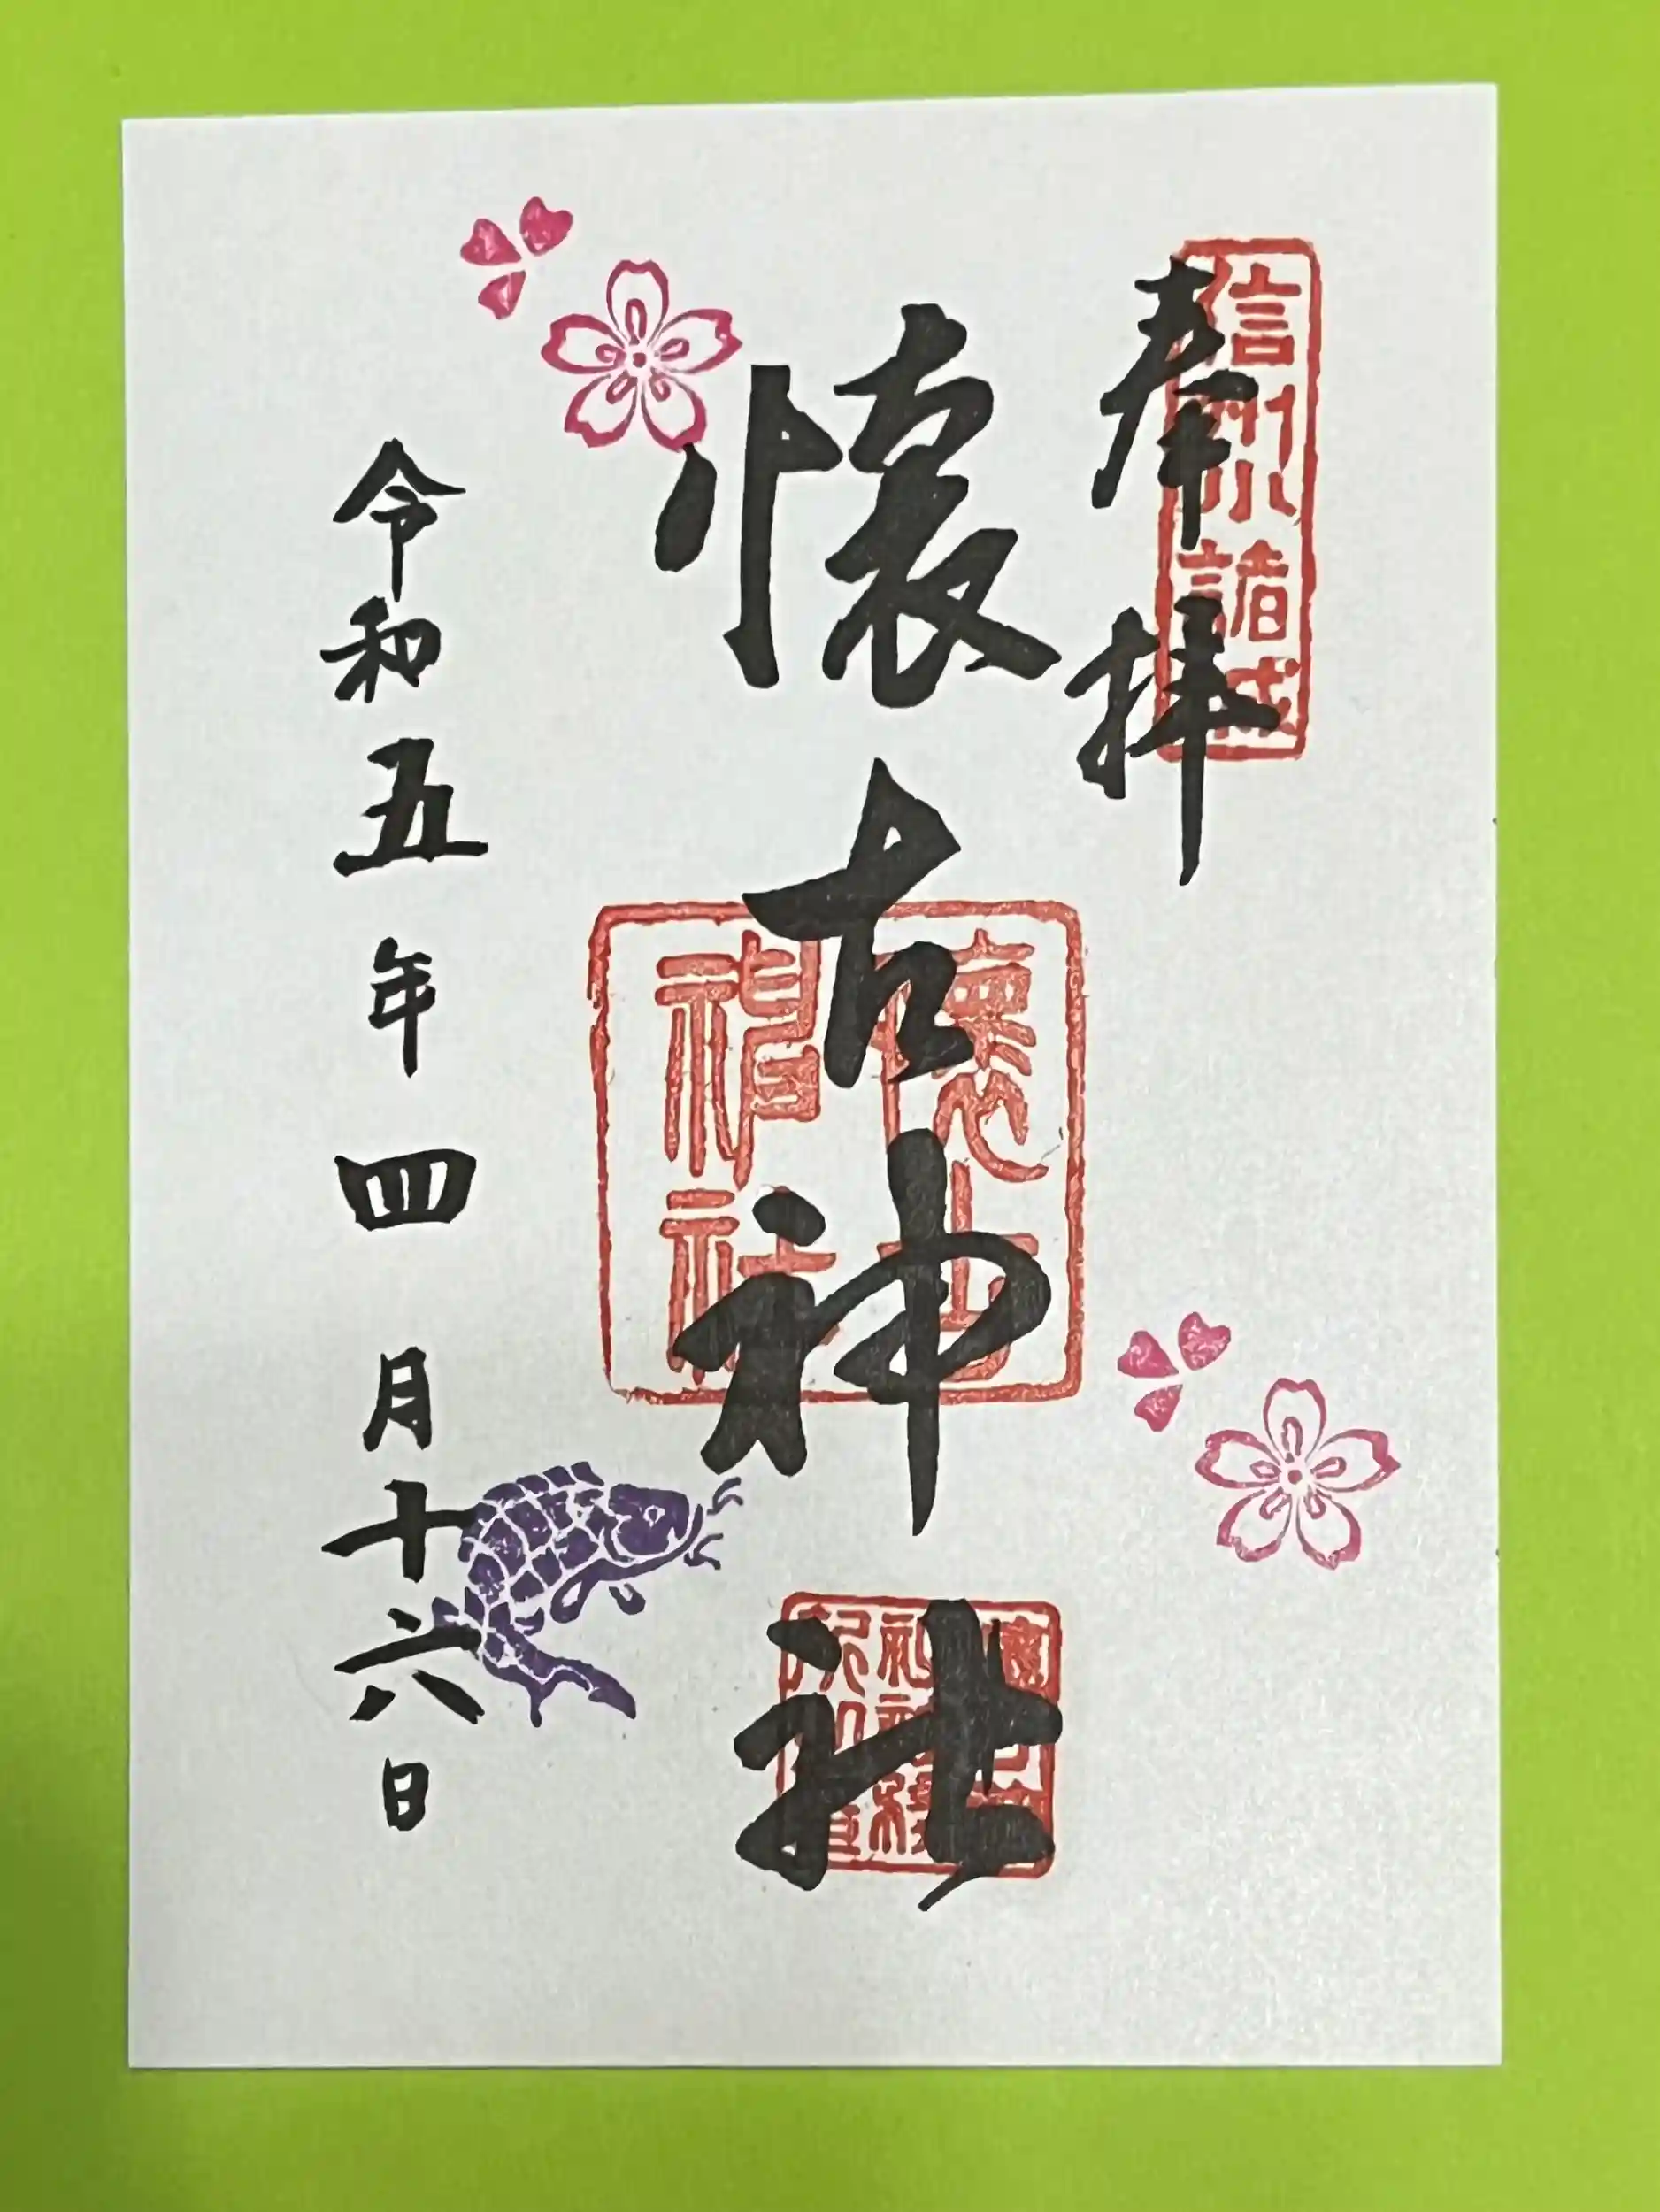 奉拝
信州小諸城
懐古神社
懐古
神社
令和五年四月十六日